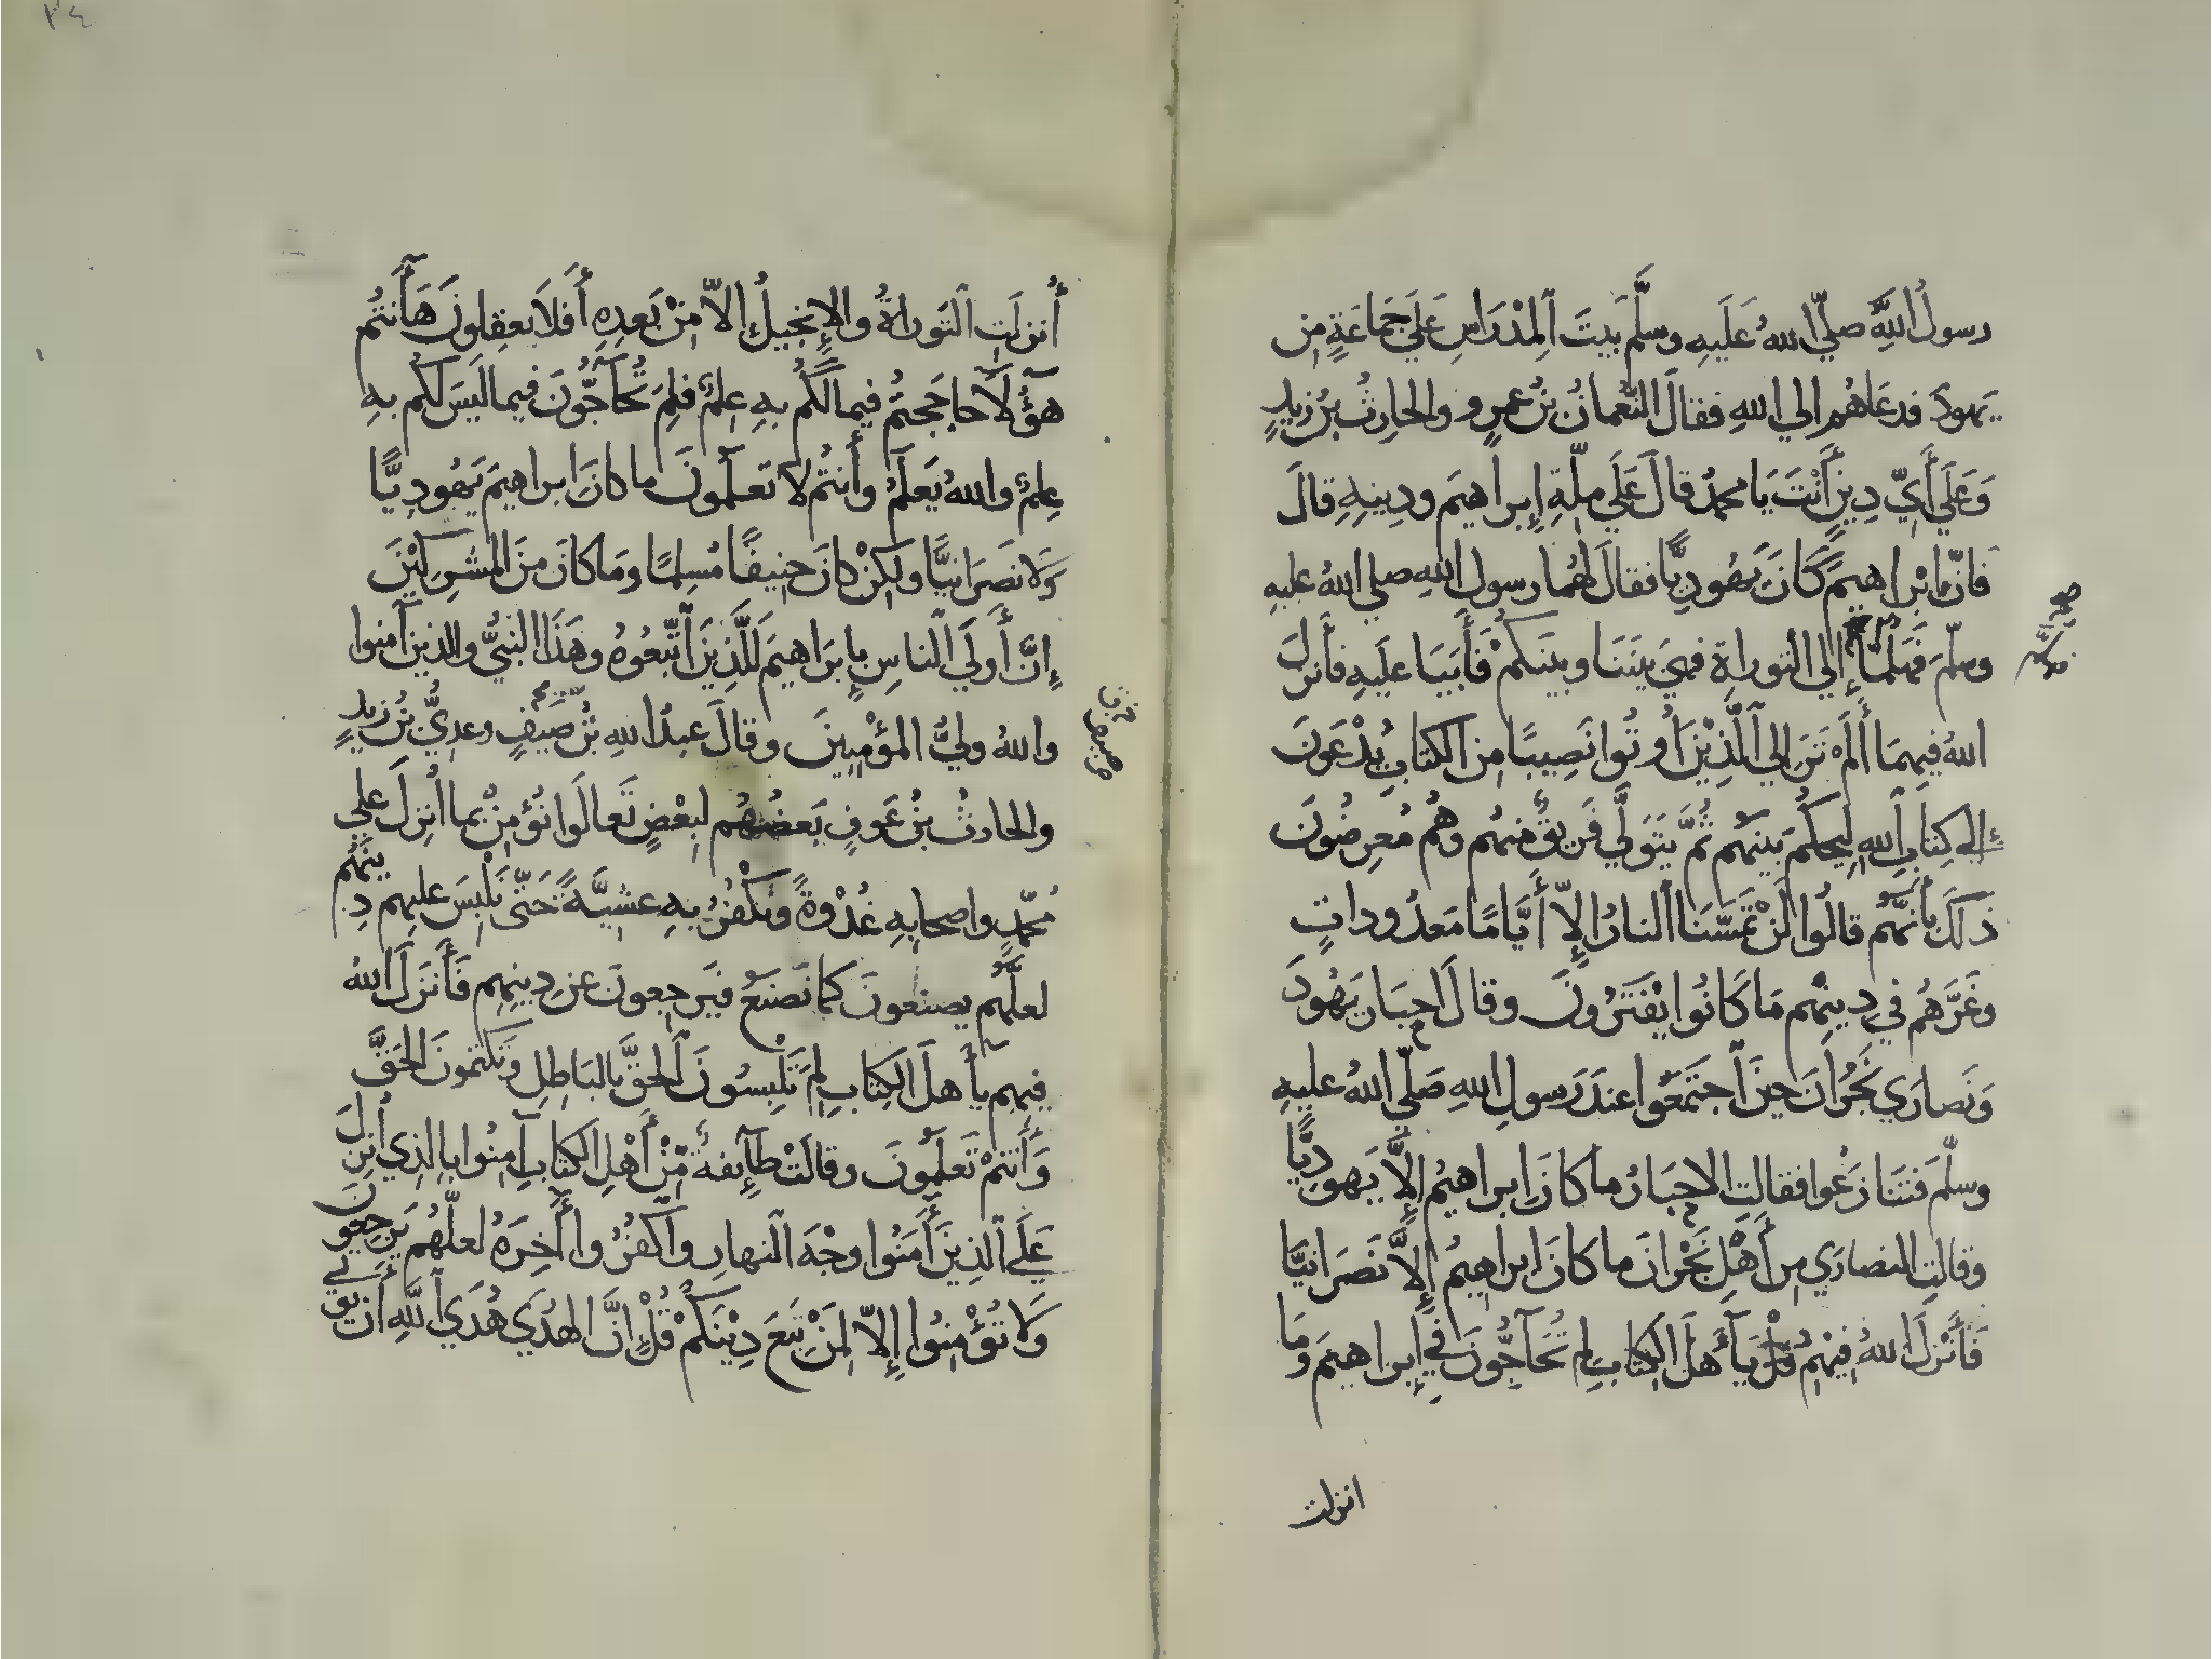 رسولُ اللَّهِ صلّي اللهُ عَلَيهِ وسلَّم بيتَ المِدْرَاسِ عَلَي جَمَاعَةٍ مِن
يَهودَ فدعَاهُم الي اللهِ فقالَ النُّعمانُ بنُ عمرٍو والحارِثُ بنُ زيدٍ
وَعَلَي أَيِّ دِينٍ أَنْتَ يَا محمدُ قالَ عَلَي ملّةِ إبراهيمَ ودِينِهِ قالَ
فانّ ابْراهيمَ كَانَ يَهُودِيًّا فقالَ لهُما رسول اللهِ صلي اللهُ عليهِ
وسلّمَ فَهَلُمَّا إلي التوراةِ فهيَ بينَنَا وبينَكمْ فَأَبَيَا علَيهِ فأنزلَ
اللهُ فيهِمَا أَلَمْ تَرَ إلي الَّذِيْنَ أُوتُوا نَصِيبًا مِنَ الكتابِ يُدْعَونَ
إلي كِتابِ اللهِ لِيَحكُمَ بَينَهُم ثُمَّ يَتَوَلَّي فَرِيقٌ مِنهُم وهُم مُعرِضُونَ
ذَلكَ بأنَّهُم قالُوا لَنْ تَمَسَّنَا النارُ إلاّ أَيَّامًا مَعدُوداتٍ
وغَرَّهُم في دِينِهِم مَا كَانُوا يَفتَرُونَ وقالَ احبَارُ يَهُودَ
وَنَصارَي نَجْرانَ حِينَ اجتَمَعُوا عندَ رَسولِ اللهِ صَلّي اللهُ عليهِ
وسلّمَ فتَنَازَعُوا فقالتِ الاحبَارُ ما كانَ ابراهيمُ إلَّا يَهودِيًّا
وقالتِ النصارَي مِن أَهْلِ نَجْرانَ ما كانَ ابراهِيمُ إلَّا نَصرَانيًّا
فَأَنْزلَ اللهُ فِيْهِمْ قُلْ يَآ أَهلَ الكتابِ لِم تُحَآجُّونَ في إبراهيمَ ومَا
انزلت
صح
أُنزلَتِ التَوراةُ والإنجيلُ إلاّ مِنْ بَعدِهِ أَفَلا تعقِلونَ هَآ أَنتُم
هؤُلآءِ حاجَجتُم فيما لَكُم بهِ عِلمٌ فلِمَ تُحَآجُّونَ فيما لَيسَ لكُم بهِ
عِلمٌ واللهُ يَعلَمُ وأَنتُم لا تَعلَمُونَ ما كانَ ابراهيمُ يَهُودِيًّا
وَلا نصَرانيًّا ولَكِنْ كانَ حَنِيفًا مُسلِمًا ومَا كانَ مِنَ المشرِكِيْنَ
إنَّ أَولَي الناسِ بإبرَاهيمَ لَلَّذِينَ اتَّبَعُوهُ وهَذَا النبيُّ والذينَ آمنوا
واللهُ وليُّ المؤْمِنِينَ وقالَ عبدُ اللهِ بنُ صَيْفٍ وعديُّ بنُ زيدٍ
والحارثُ بنُ عَوفٍ بَعضُهُم لِبَعْضٍ تَعالَوا نُؤمِنْ بما أُنزِلَ علي
مُحمَّدٍ واصحابِهِ غُدْوةً ونَكْفُرُ بهِ عشيَّةً حَتّي نَلْبِسَ عليهِم دِينَهُم
لعلَّهُم يصنعونَ كما نَصنَعُ فيَرجِعونَ عن دِينِهِم فَأَنزَلَ اللهُ
فيهِم يآ أهلَ الكِتابِ لِمَ تَلْبِسُونَ الحَقَّ بالبَاطِلِ وتَكتمُونَ الحَقَّ
وَأَنتُمْ تَعلَمُونَ وقالَتْ طآئِفةٌ مِنْ أَهْلِ الكتابِ آمِنُوا بالذِي أُنزِلَ
عَلَي الذِينَ أَمَنُوا وجْهَ النهارِ واكفُرُوا أَخِرَهُ لعلَّهُم يَرجِعونَ
وَلا تُؤْمِنُوا إلاّ لِمَنْ تَبِعَ دِيْنَكُمْ قُلْ إنَّ الهُدَي هُدَي اللَّهِ أَنْ يُؤتَي
٣٤